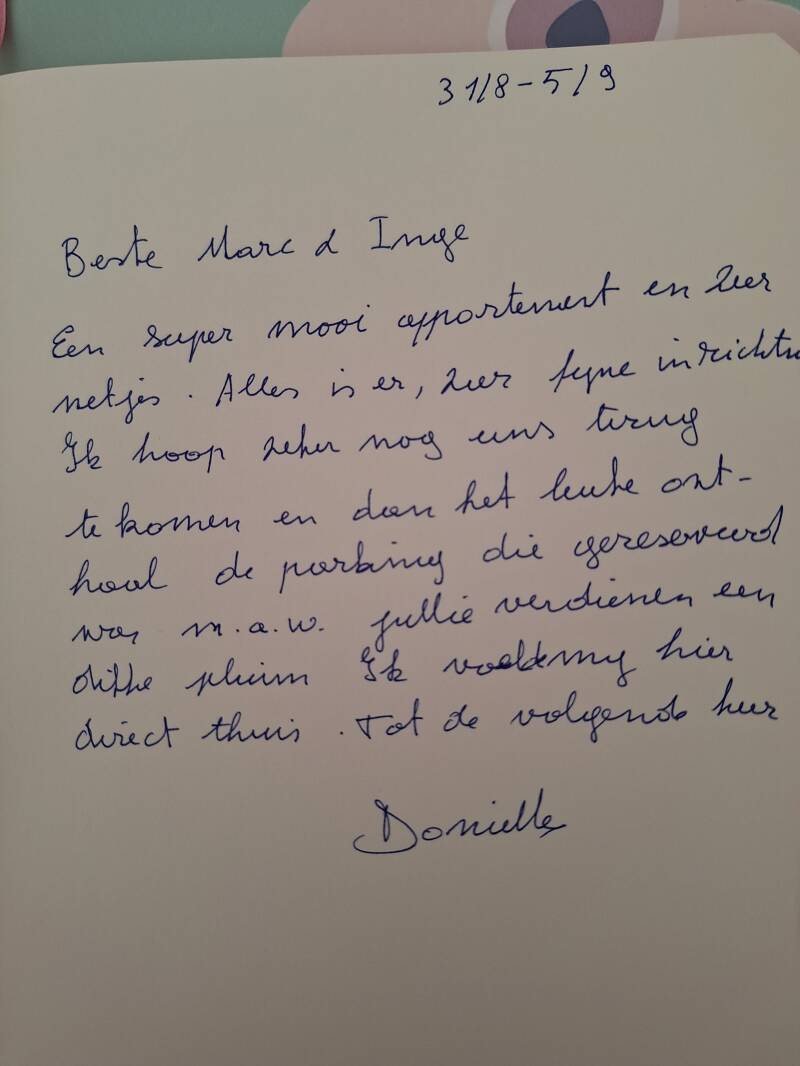 31/8 - 5/9
Beste Marc & Inge
Een super mooi appartement en zeer
netjes. Alles is er, zeer fijne inrichtin
Ik hoop zeker nog eens terug
te komen en dan het leuke ont-
haal de parking die gereserveerd
was m.a.w. jullie verdienen een
dikke pluim Ik voelde my hier
direct thuis. Tot de volgende keer
Danielle